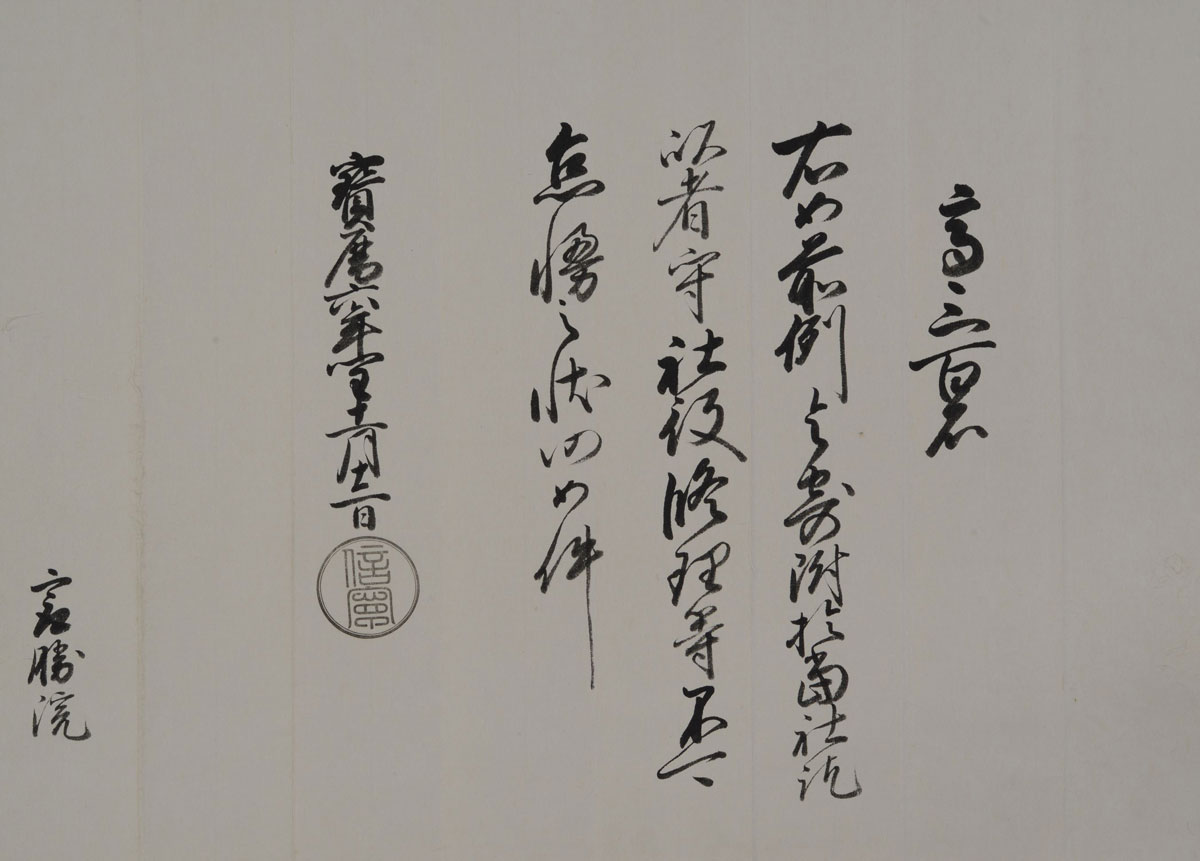 高三百石
右如前例令寄附於當社訖
然者守社役修理等不可
怠慢之状仍如件
寶暦六年閏十一月十二日
信寧
最勝院